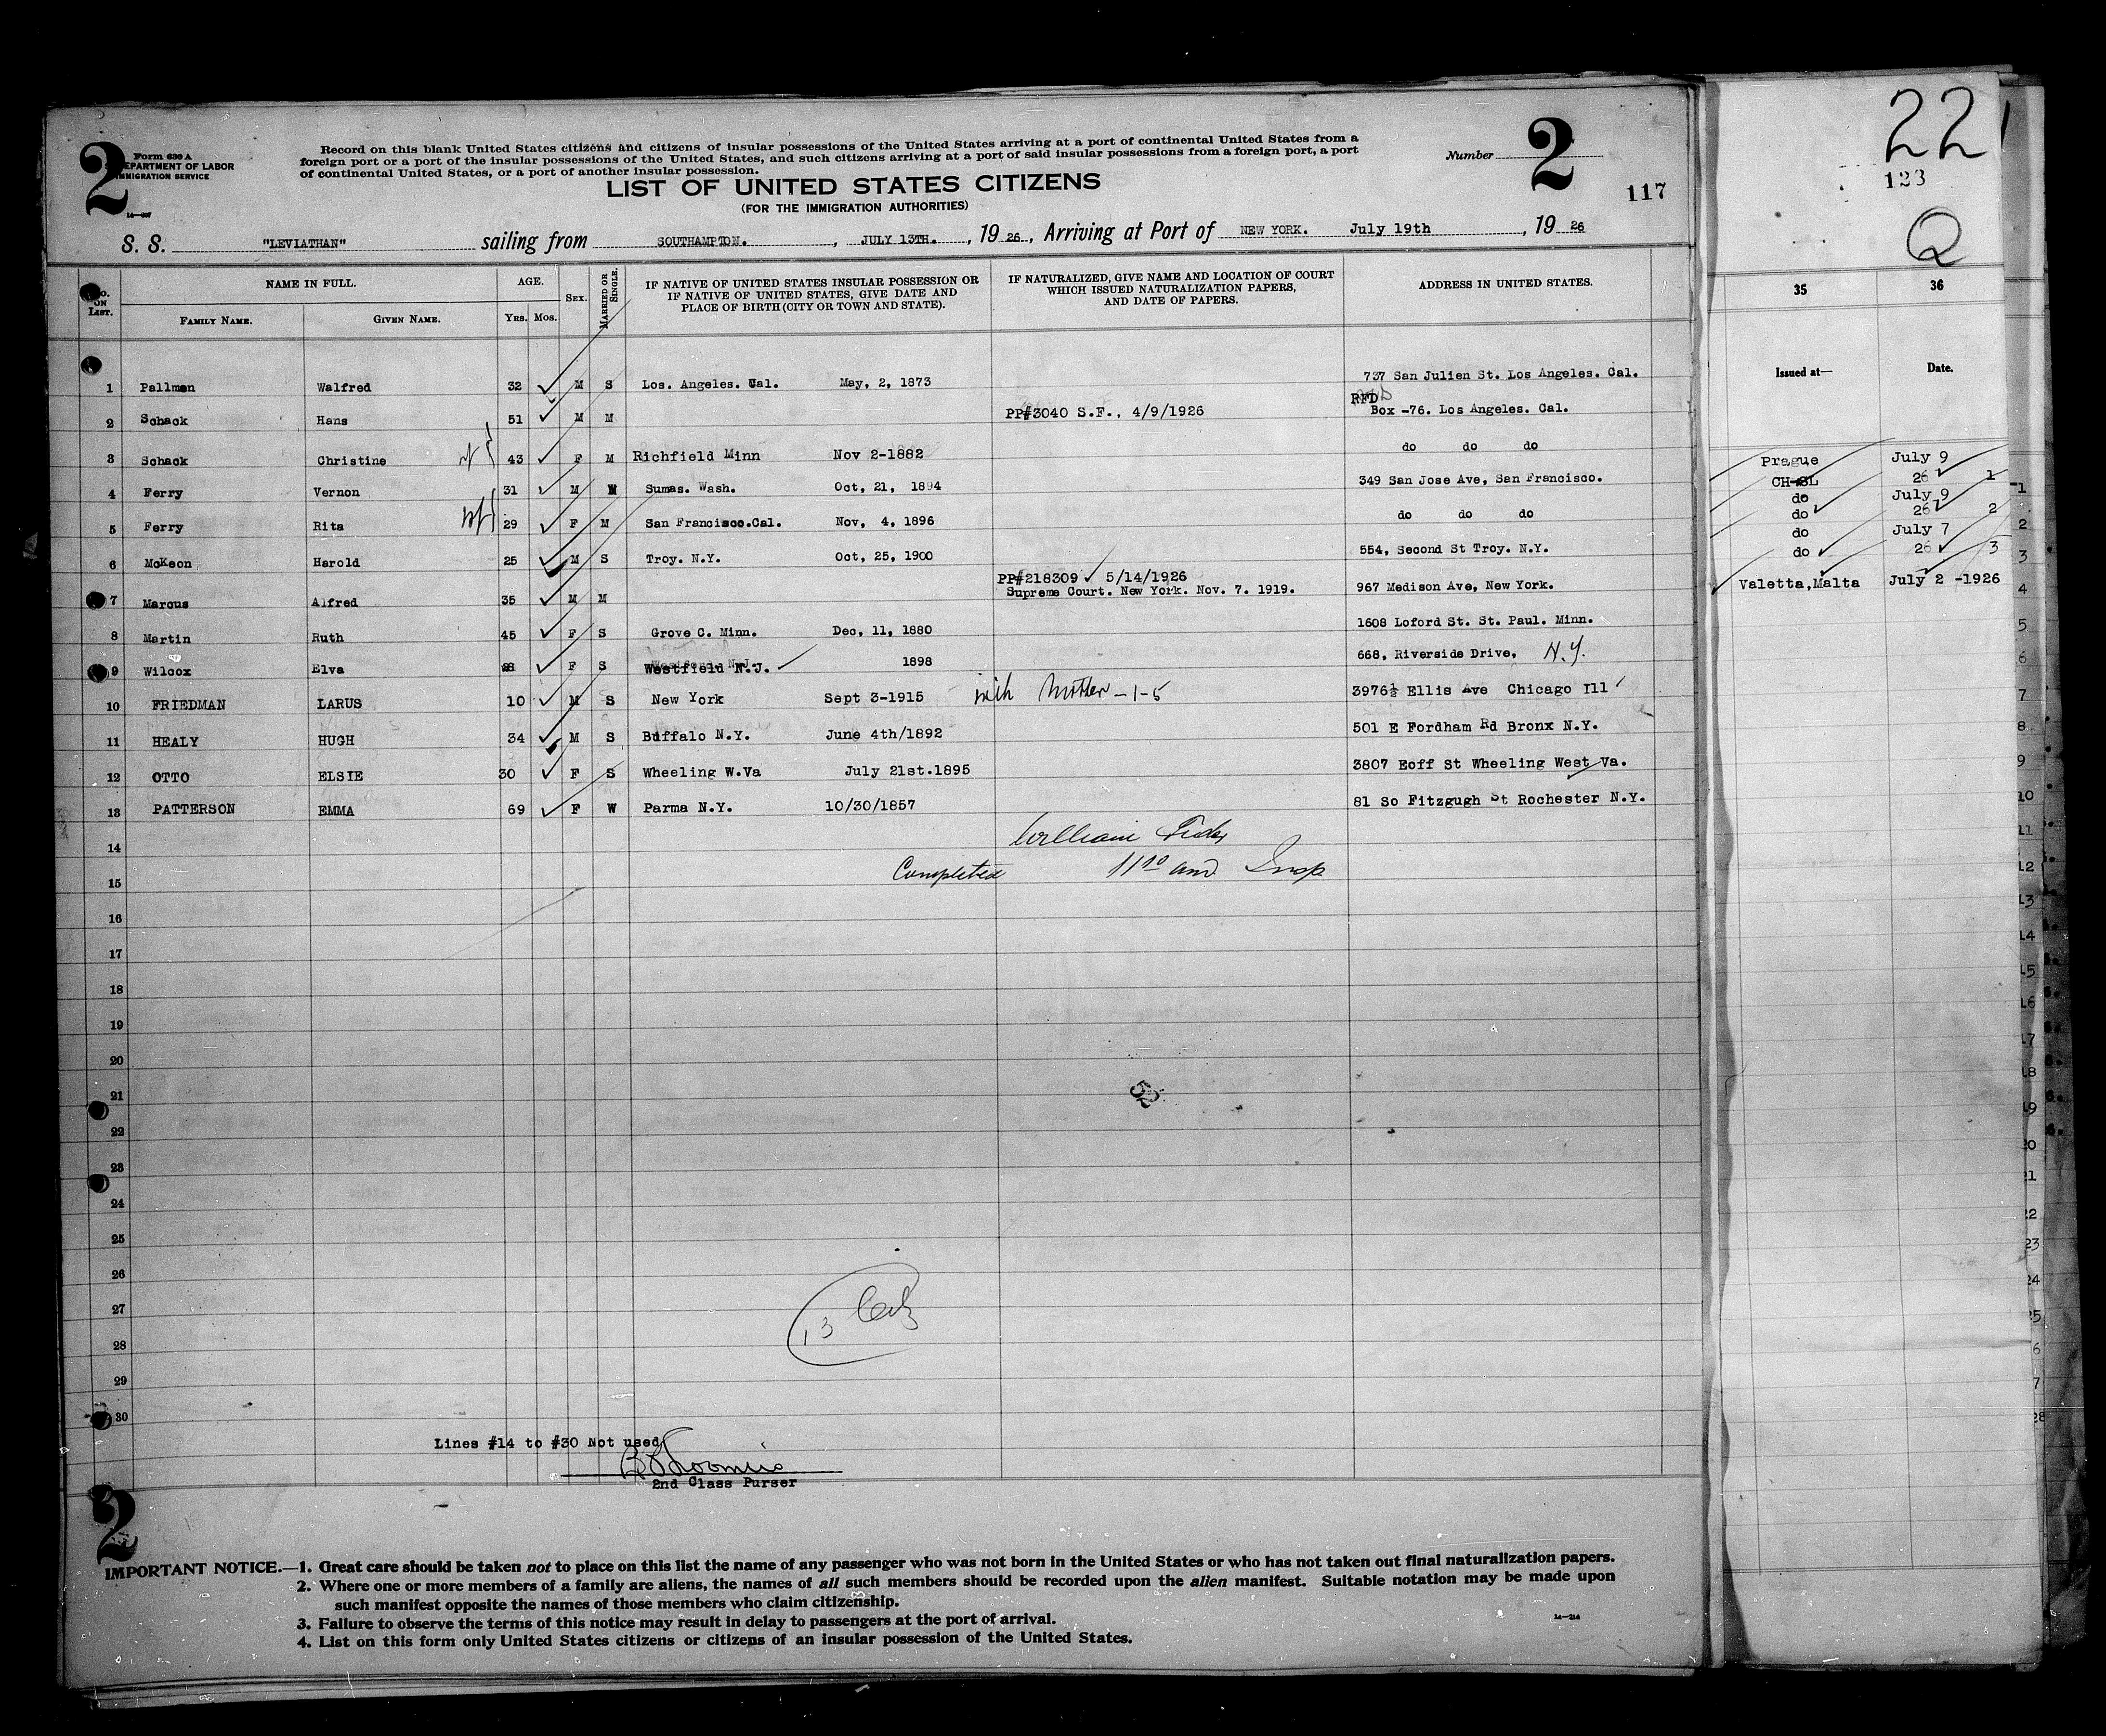 2
Form 630 A
DEPARTMENT OF LABOR
IMMIGRATION SERVICE
Record on this blank United States citizens and citizens of insular possessions of the United States arriving at a port of continental United States from a
foreign port or a port of the insular possessions of the United States, and such citizens arriving at a port of said insular possessions from a foreign port, a port
of continental United States, or a port of another insular possession.
Number 2
117
LIST OF UNITED STATES CITIZENS
(FOR THE IMMIGRATION AUTHORITIES)
S. S. "LEVIATHAN" sailing from SOUTHAMPTON. , JULY 13TH. , 19 26 , Arriving at Port of NEW YORK. July 19th , 19 26
No. ON LIST. NAME IN FULL. FAMILY NAME. GIVEN NAME. AGE. YRS. MOS. SEX. MARRIED OR SINGLE. IF NATIVE OF UNITED STATES INSULAR POSSESSION OR IF NATIVE OF UNITED STATES, GIVE DATE AND PLACE OF BIRTH (CITY OR TOWN AND STATE). IF NATURALIZED, GIVE NAME AND LOCATION OF COURT WHICH ISSUED NATURALIZATION PAPERS, AND DATE OF PAPERS. ADDRESS IN UNITED STATES.
1 Pallman Walfred 32 M S Los. Angeles. Cal. May, 2, 1873 737 San Julien St. Los Angeles. Cal.
2 Schack Hans 51 M M PP#3040 S.F., 4/9/1926 RFD Box -76. Los Angeles. Cal.
3 Schack Christine 43 F M Richfield Minn Nov 2-1882 do do do
4 Ferry Vernon 31 M M Sumas. Wash. Oct, 21, 1894 349 San Jose Ave, San Francisco.
5 Ferry Rita 29 F M San Francisco.Cal. Nov, 4, 1896 do do do
6 McKeon Harold 25 M S Troy. N.Y. Oct, 25, 1900 554, Second St Troy. N.Y.
7 Marcus Alfred 35 M M PP#218309 5/14/1926 Supreme Court. New York. Nov. 7. 1919. 967 Medison Ave, New York.
8 Martin Ruth 45 F S Grove C. Minn. Dec, 11, 1880 1608 Loford St. St. Paul. Minn.
9 Wilcox Elva 28 F S Westfield N.J. 1898 668, Riverside Drive, N.Y.
10 FRIEDMAN LARUS 10 M S New York Sept 3-1915 with Mother -1-5 3976½ Ellis Ave Chicago Ill
11 HEALY HUGH 34 M S Buffalo N.Y. June 4th/1892 501 E Fordham Rd Bronx N.Y.
12 OTTO ELSIE 30 F S Wheeling W.Va July 21st.1895 3807 Eoff St Wheeling West Va.
13 PATTERSON EMMA 69 F W Parma N.Y. 10/30/1857 81 So Fitzgugh St Rochester N.Y.
14 William
15 Completed 11 10 am Insp
16
17
18
19
20
21
22
23
24
25
26
27
28
29
30
52
13
Lines #14 to #30 Not used
2nd Class Purser
2
IMPORTANT NOTICE.—1. Great care should be taken not to place on this list the name of any passenger who was not born in the United States or who has not taken out final naturalization papers.
2. Where one or more members of a family are aliens, the names of all such members should be recorded upon the alien manifest. Suitable notation may be made upon
such manifest opposite the names of those members who claim citizenship.
3. Failure to observe the terms of this notice may result in delay to passengers at the port of arrival.
4. List on this form only United States citizens or citizens of an insular possession of the United States.
14—214
22
123
Q
35 36
Issued at— Date.
Prague July 9
CH-SL 26 1
do July 9
do 26 2
do July 7
do 26 3
Valetta,Malta July 2 -1926
1
2
3
4
5
6
7
8
9
10
11
12
13
14
15
16
17
18
19
20
21
22
23
24
25
6
7
28